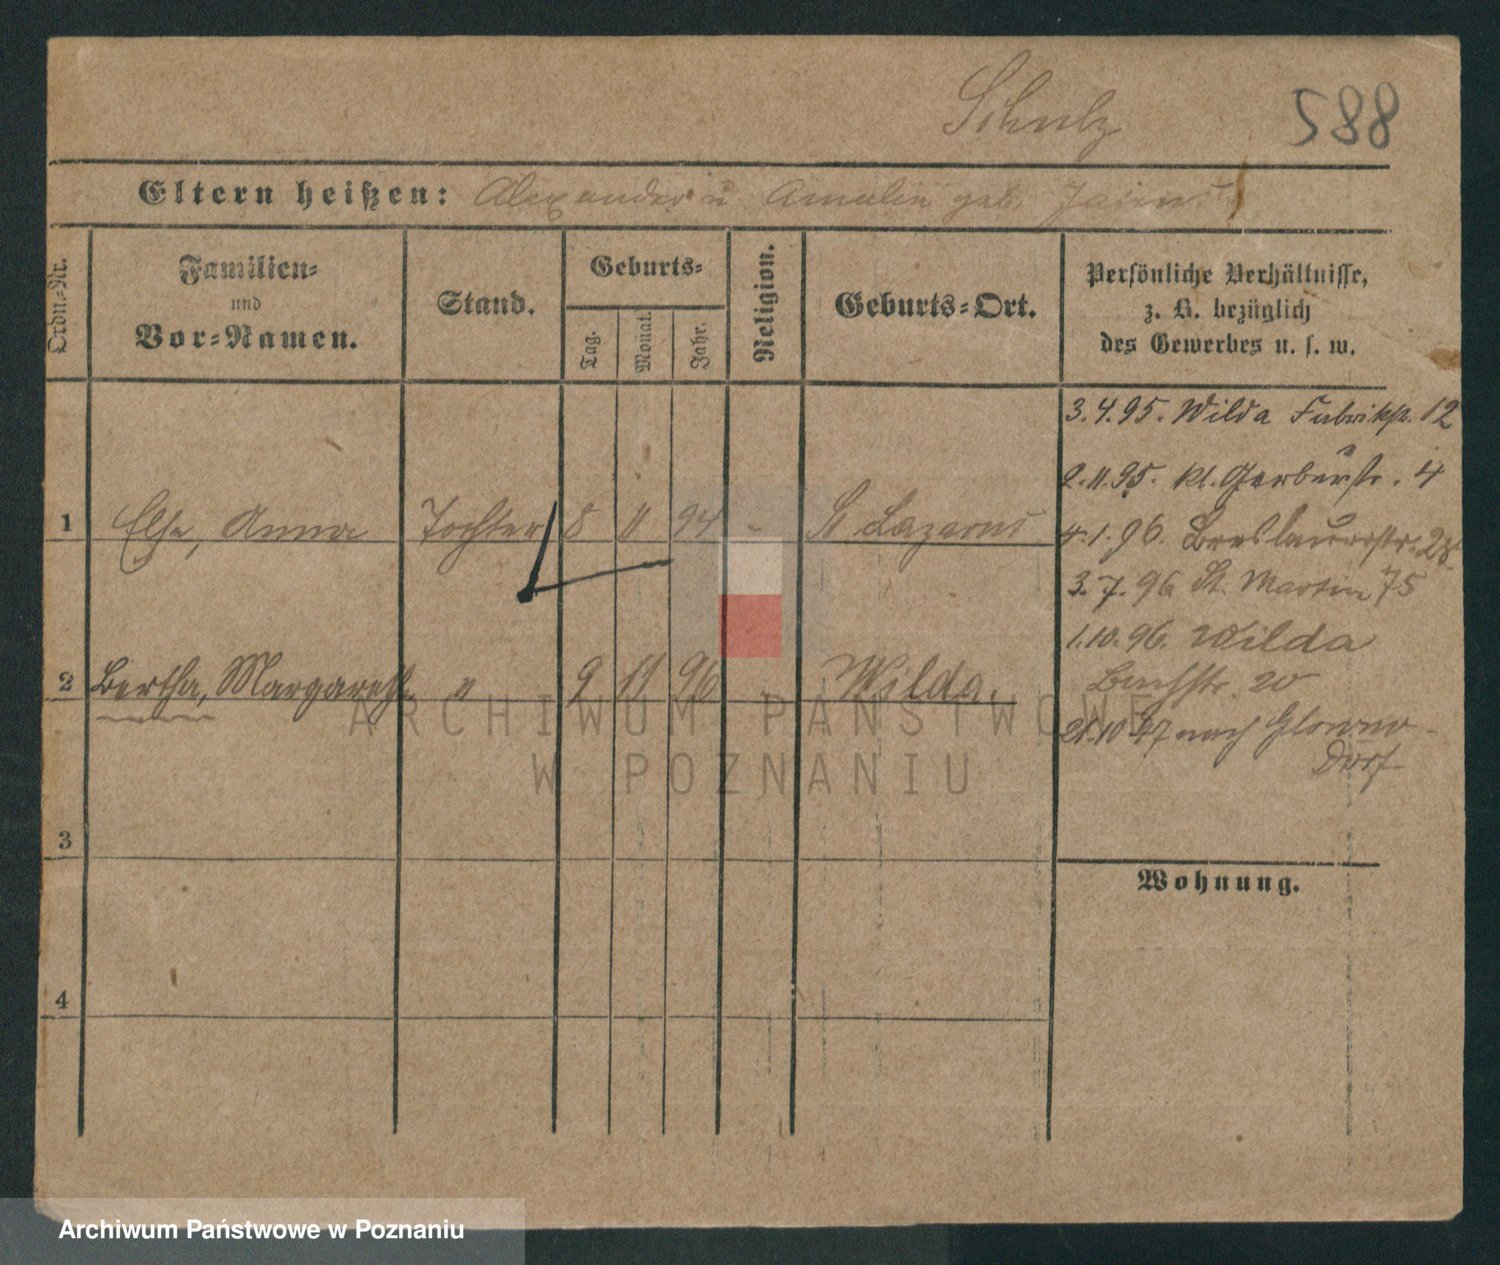 Schulz 588
Eltern heißen: Alexander u Amalie geb.
Ordn.-Nr.
Familien-
und
Vor-Namen.
Stand.
Geburts-
Tag.
Monat.
Jahr.
Religion.
Geburts-Ort.
Persönliche Verhältnisse,
z. B. bezüglich
des Gewerbes u. s. w.
3.4.95. Wilda Fabrikstr. 12
2.11.95. kl. Gerberstr. 4
1 Else, Anna Tochter 8 11 94 - St Lazarus
4.1.96. Breslauerstr.
3.7.96 St. Martin 75
1.10.96. Wilda
Bachstr. 20
2 Bertha, Margareth " 9 11 96 Wilda.
21.10.97 nach Glowno-
Dorf
3
Wohnung.
4
ARCHIWUM PAŃSTWOWE
W POZNANIU
Archiwum Państwowe w Poznaniu